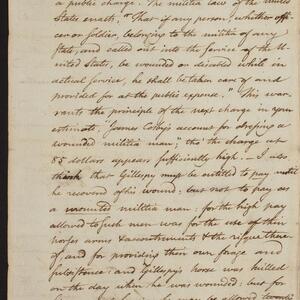 a public charge. The militia law of the United
States enacts, "That if any person, whether offi-
cer or soldier, belonging to the militia of any
State, and called out into the service of the U-
nited States, be wounded or disabled whilst in
actual service, he shall be taken care of and
provided for at the public expense." This war-
rants the principle of the next charge in your
estimate "James Cosby's account for dressing a
wounded militia man; tho' the charge at
85 dollars appears sufficiently high. - I also
think that Gillespy must be entitled to pay until
he recovered of his wound: but not to pay as
a mounted militia man; for the high pay
allowed to such men was for the use of their
horses arms & accoutrements & the risque there
of; and for providing their own forage and
subsistence: and Gillespy's horse was killed
on the day when he was wounded; but for